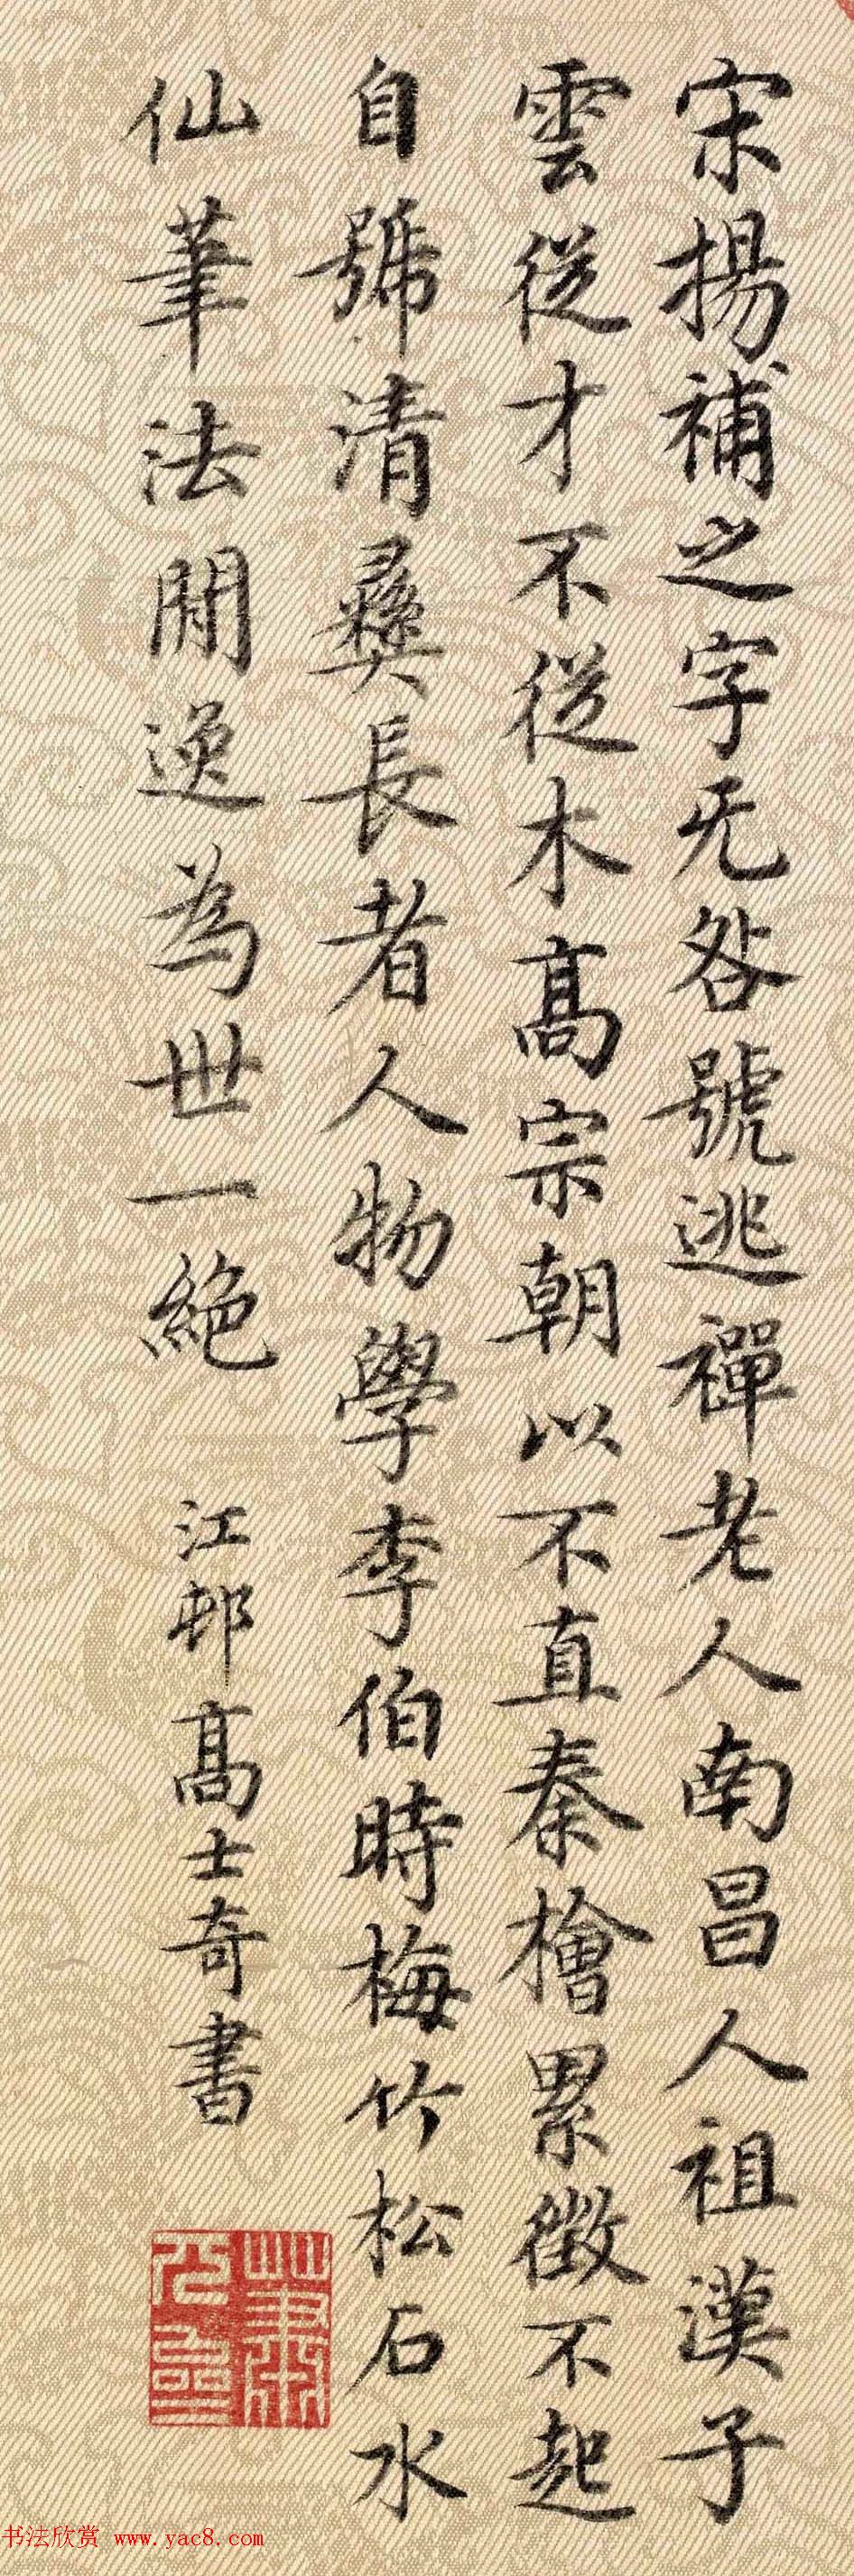 宋揚補之字无咎號逃禪老人南昌人祖漢子
雲從才不從木高宗朝以不直秦檜累徵不起
自號清彝長者人物學李伯時梅竹松石水
仙筆法閒逸為世一絕
江邨高士奇書
书法欣赏 www.yac8.com